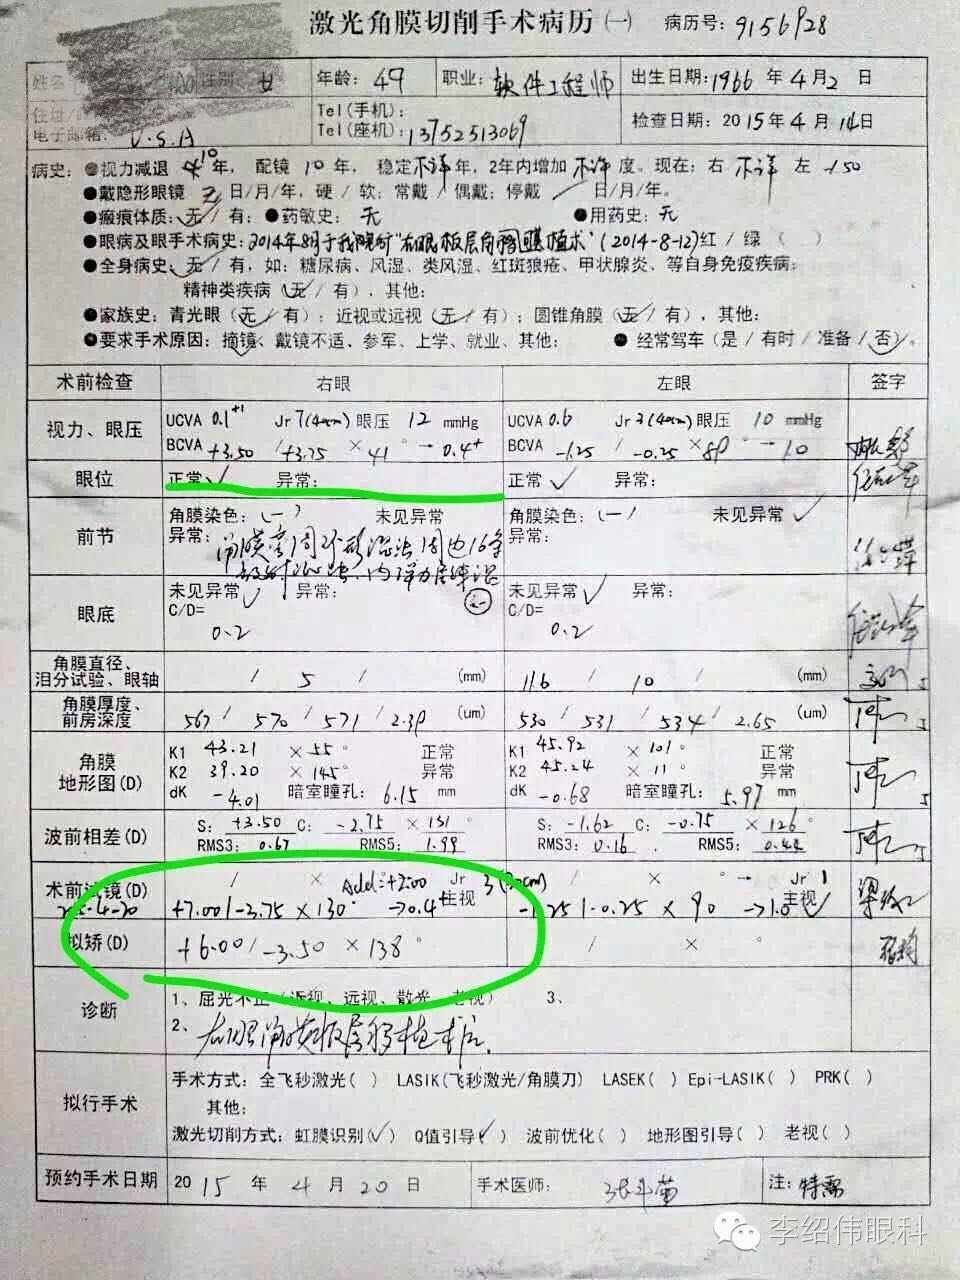 激光角膜切削手术病历(一) 病历号: 9156928
姓名 性别: 女 年龄: 49 职业: 软件工程师 出生日期: 1966 年 4 月 2 日
住址/
电子邮箱: U.S.A Tel(手机): Tel(座机): 13752513069 检查日期: 2015 年 4 月 14 日
病史: ●视力减退 10 年, 配镜 10 年, 稳定 不详 年, 2年内增加 不详 度。现在: 右 不详 左 -1.50
●戴隐形眼镜 无 日/月/年, 硬 / 软; 常戴 / 偶戴; 停戴 / 日/月/年。
●瘢痕体质: 无 / 有; ●药敏史: 无 ●用药史: 无
●眼病及眼手术病史: 2014年8月于我院行"右眼板层角膜移植术" (2014-8-12) 红 / 绿 ( )
●全身病史: 无 / 有, 如: 糖尿病、风湿、类风湿、红斑狼疮、甲状腺炎、等自身免疫疾病;
精神类疾病 (无 / 有), 其他:
●家族史: 青光眼 (无 / 有); 近视或远视 (无 / 有); 圆锥角膜 (无 / 有), 其他:
●要求手术原因: 摘镜、戴镜不适、参军、上学、就业、其他: ● 经常驾车 (是 / 有时 / 准备 / 否)。
术前检查 右眼 左眼 签字
视力、眼压 UCVA 0.1+1 Jr 7 (40cm) 眼压 12 mmHg UCVA 0.6 Jr 3 (40cm) 眼压 10 mmHg
BCVA +3.50 /+3.75 × 41 ° → 0.4+ BCVA -1.25 / -0.25 × 89 ° → 1.0
眼位 正常 ✓ 异常: 正常 ✓ 异常:
前节 角膜染色: (-) 未见异常 角膜染色: (-) 未见异常 ✓
异常: 异常:
眼底 未见异常 ✓ 异常: 未见异常 ✓ 异常:
C/D= 0.2 C/D= 0.2
角膜直径、
泪分试验、眼轴 / 5 / (mm) 11.6 / 10 / (mm)
角膜厚度、
前房深度 567 / 570 / 571 / 2.39 (um) 530 / 531 / 534 / 2.65 (um)
角膜
地形图(D) K1 43.21 × 55 ° 正常 K1 45.92 × 101 ° 正常
K2 39.20 × 145 ° 异常 K2 45.24 × 11 ° 异常
dK -4.01 暗室瞳孔: 6.15 mm dK -0.68 暗室瞳孔: 5.97 mm
波前相差(D) S: +3.50 C: -2.75 × 131 ° S: -1.62 C: -0.75 × 126 °
RMS3: 0.67 RMS5: 1.99 RMS3: 0.16 RMS5: 0.42
术前试镜(D) / × Add:+2.00 Jr 3 (30cm) / × ° → Jr 1
2015-4-20 +7.00/-3.75 × 130° →0.4+ 主视 -1.25/-0.25 × 90 →1.0 主视 ✓
拟矫(D) +6.00/-3.50 × 138 ° / × °
诊断 1、屈光不正 (近视、远视、散光、老视) 3、
2、右眼角膜板层移植术后.
拟行手术 手术方式: 全飞秒激光( ) LASIK(飞秒激光/角膜刀) LASEK( ) Epi-LASIK( ) PRK( )
其他:
激光切削方式: 虹膜识别(✓) Q值引导(✓) 波前优化( ) 地形图引导( ) 老视( )
预约手术日期 2015 年 4 月 20 日 手术医师: 注: 特需
李绍伟眼科